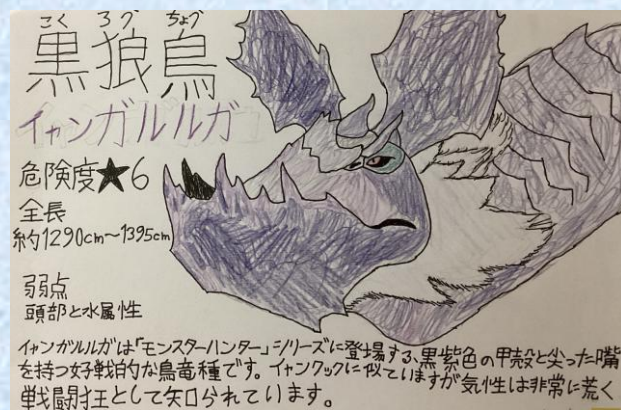 こくろうちょう
黒狼鳥
イャンガルルガ
危険度★6
全長
約1290cm～1395cm
弱点
頭部と水属性
イャンガルルガは「モンスターハンター」シリーズに登場する、黒紫色の甲殻と尖った嘴
を持つ好戦的な鳥竜種です。イャンクックに似ていますが気性は非常に荒く
戦闘狂として知られています。